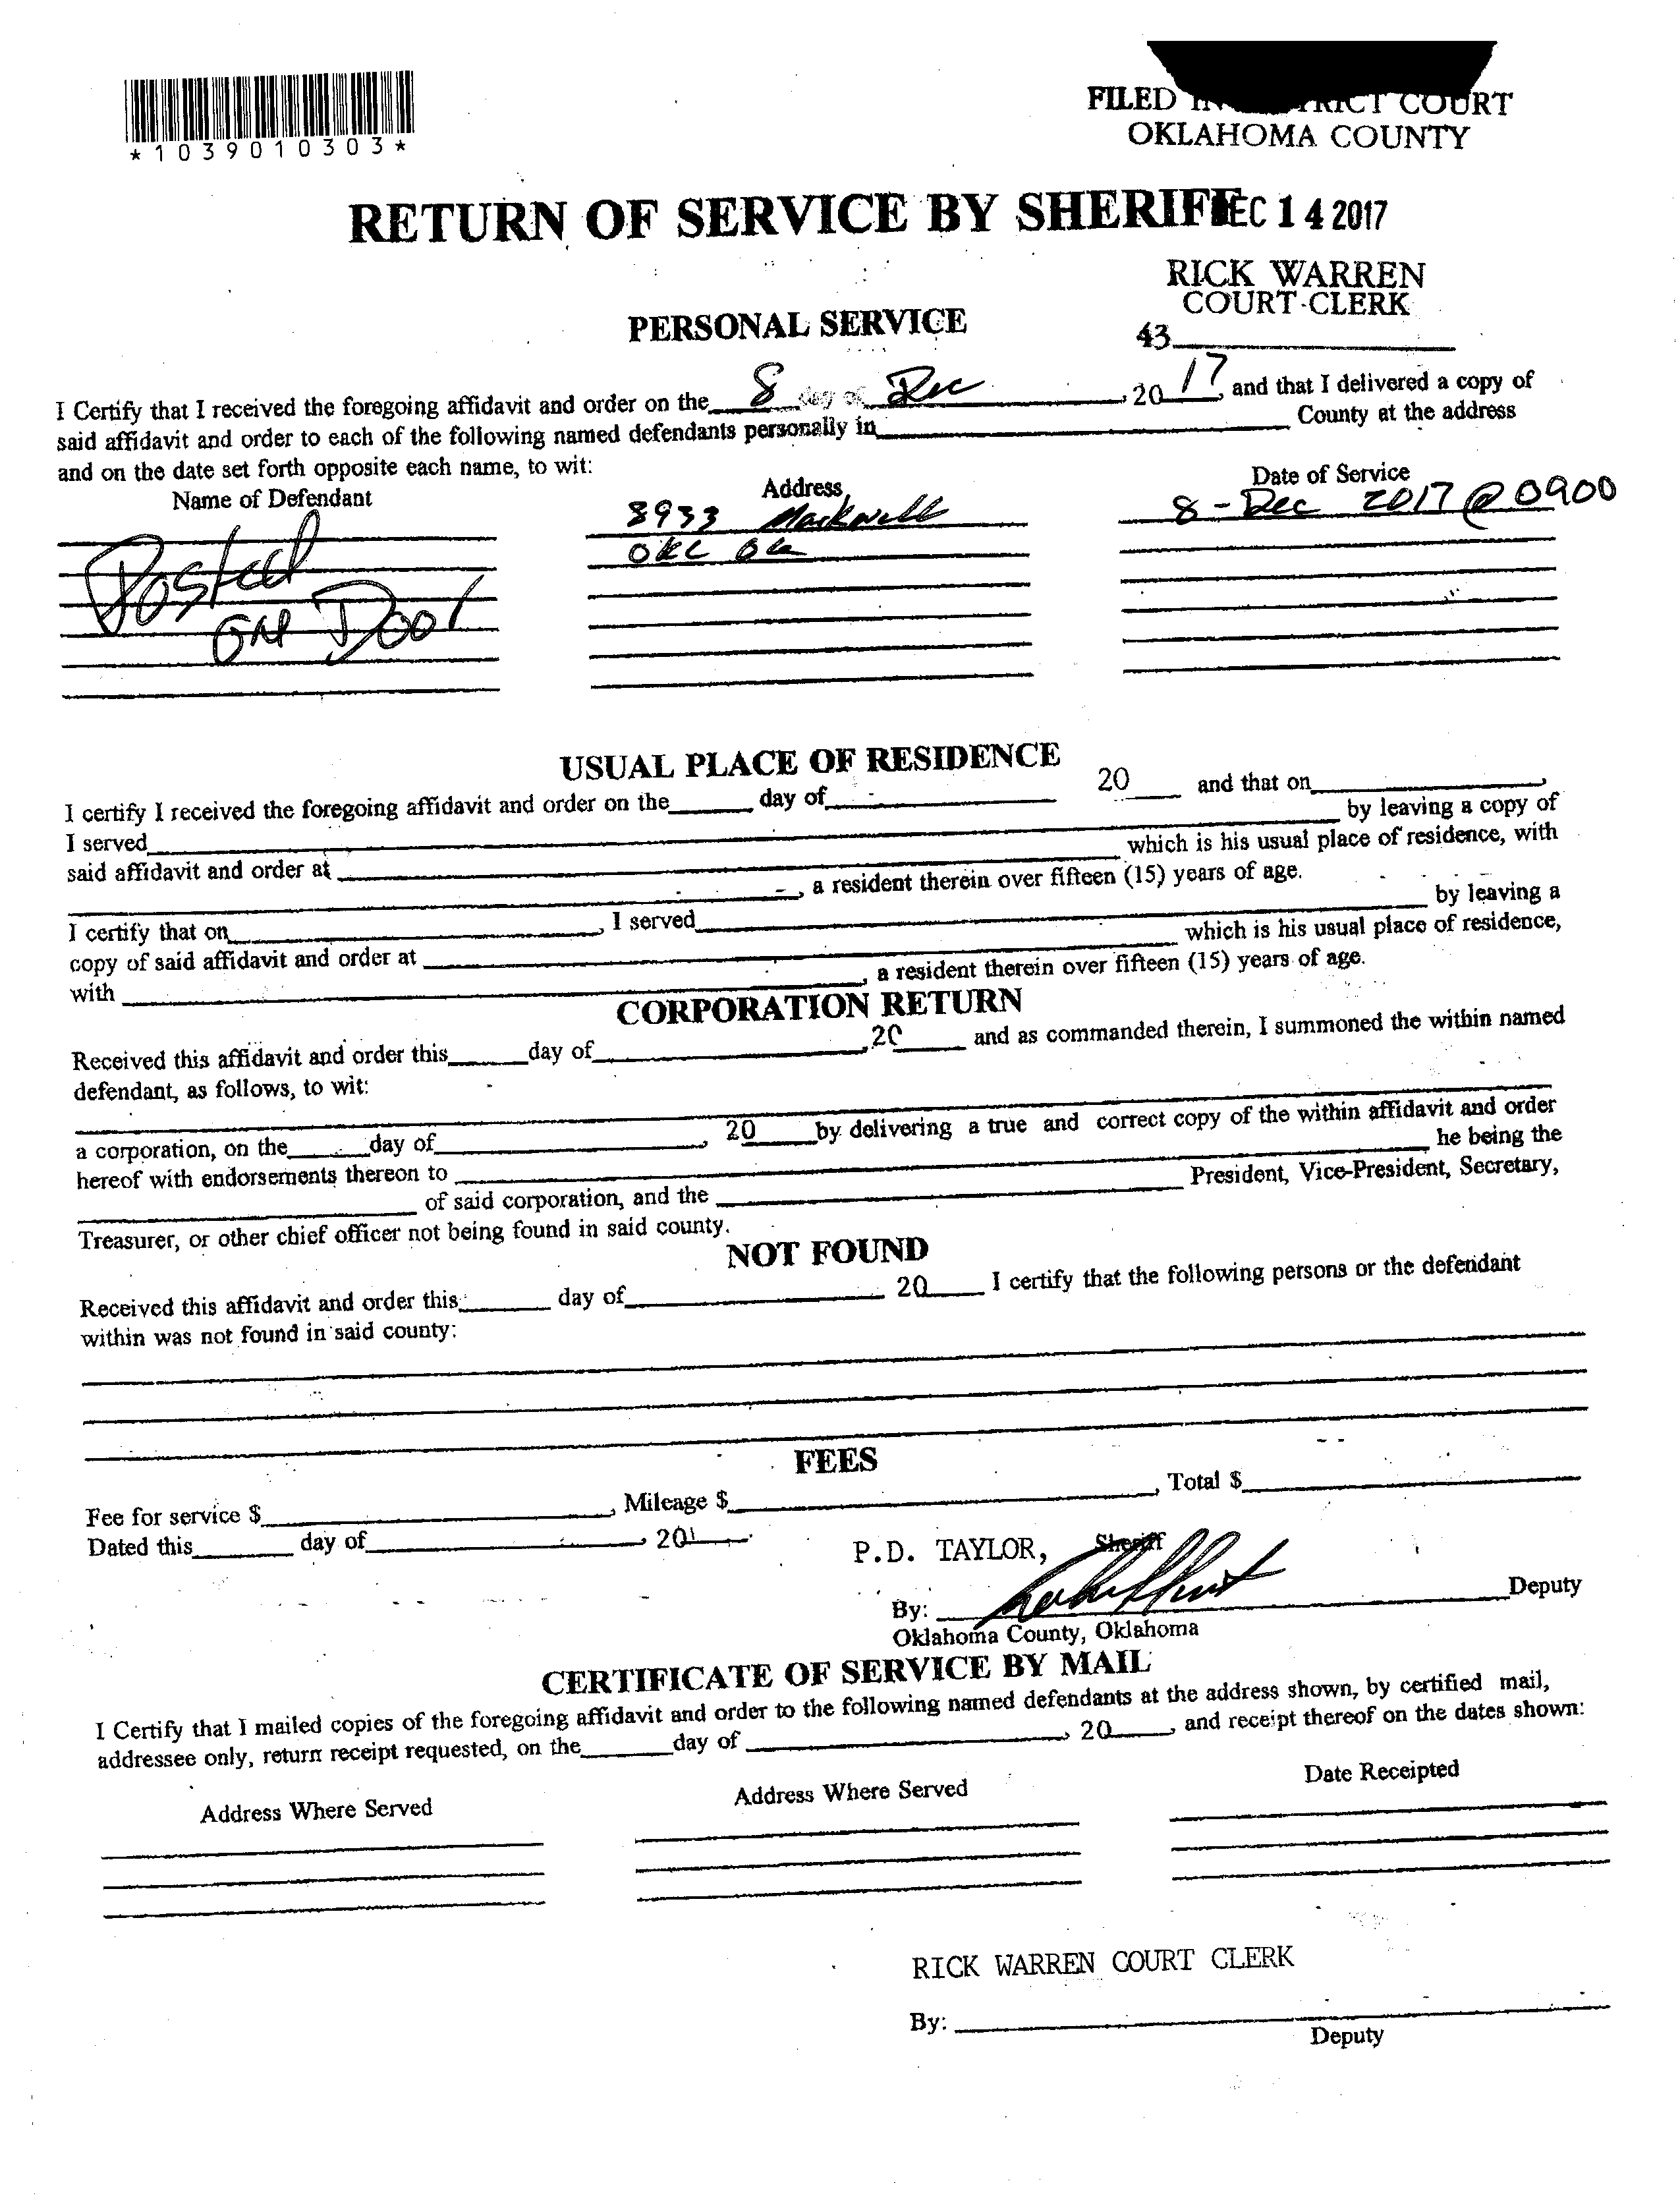 *1039010303*
FILED IN DISTRICT COURT
OKLAHOMA COUNTY
RETURN OF SERVICE BY SHERIFF
DEC 14 2017
RICK WARREN
COURT CLERK
43
PERSONAL SERVICE
I Certify that I received the foregoing affidavit and order on the 8 day of Dec, 20 17, and that I delivered a copy of
said affidavit and order to each of the following named defendants personally in County at the address
and on the date set forth opposite each name, to wit:
Name of Defendant Address Date of Service
8933 OKC
8-Dec 2017 @ 0900
Posted
on Door
USUAL PLACE OF RESIDENCE
I certify I received the foregoing affidavit and order on the day of 20 and that on,
I served by leaving a copy of
said affidavit and order at which is his usual place of residence, with
, a resident therein over fifteen (15) years of age.
I certify that on, I served by leaving a
copy of said affidavit and order at which is his usual place of residence,
with, a resident therein over fifteen (15) years of age.
CORPORATION RETURN
Received this affidavit and order this day of, 20 and as commanded therein, I summoned the within named
defendant, as follows, to wit:
a corporation, on the day of, 20 by delivering a true and correct copy of the within affidavit and order
hereof with endorsements thereon to he being the
of said corporation, and the President, Vice-President, Secretary,
Treasurer, or other chief officer not being found in said county.
NOT FOUND
Received this affidavit and order this day of 20 I certify that the following persons or the defendant
within was not found in said county:
FEES
Fee for service $, Mileage $, Total $
Dated this day of, 20
P.D. TAYLOR, Sheriff
By: Deputy
Oklahoma County, Oklahoma
CERTIFICATE OF SERVICE BY MAIL
I Certify that I mailed copies of the foregoing affidavit and order to the following named defendants at the address shown, by certified mail,
addressee only, return receipt requested, on the day of, 20, and receipt thereof on the dates shown:
Address Where Served Address Where Served Date Receipted
RICK WARREN COURT CLERK
By:
Deputy